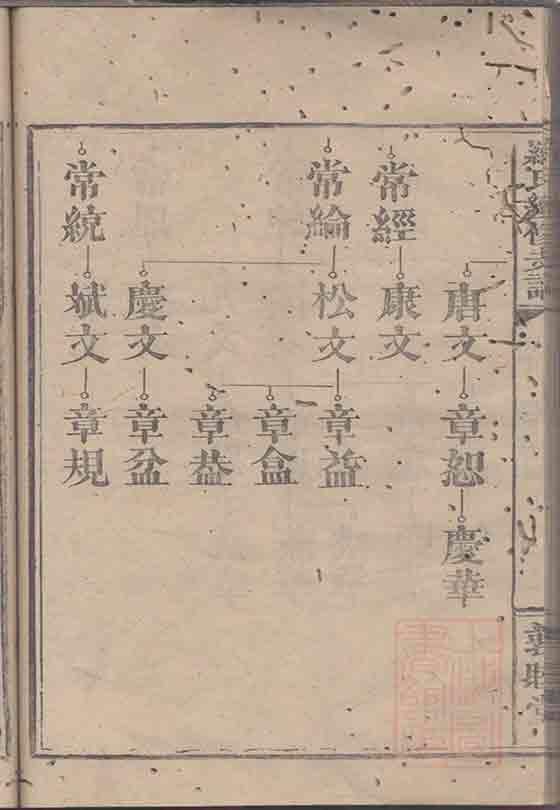 氏續修
唐文 章恕 慶華
常經 康文
常綸 松文 章益
章盒
章
慶文 章盆
常統 斌文 章規